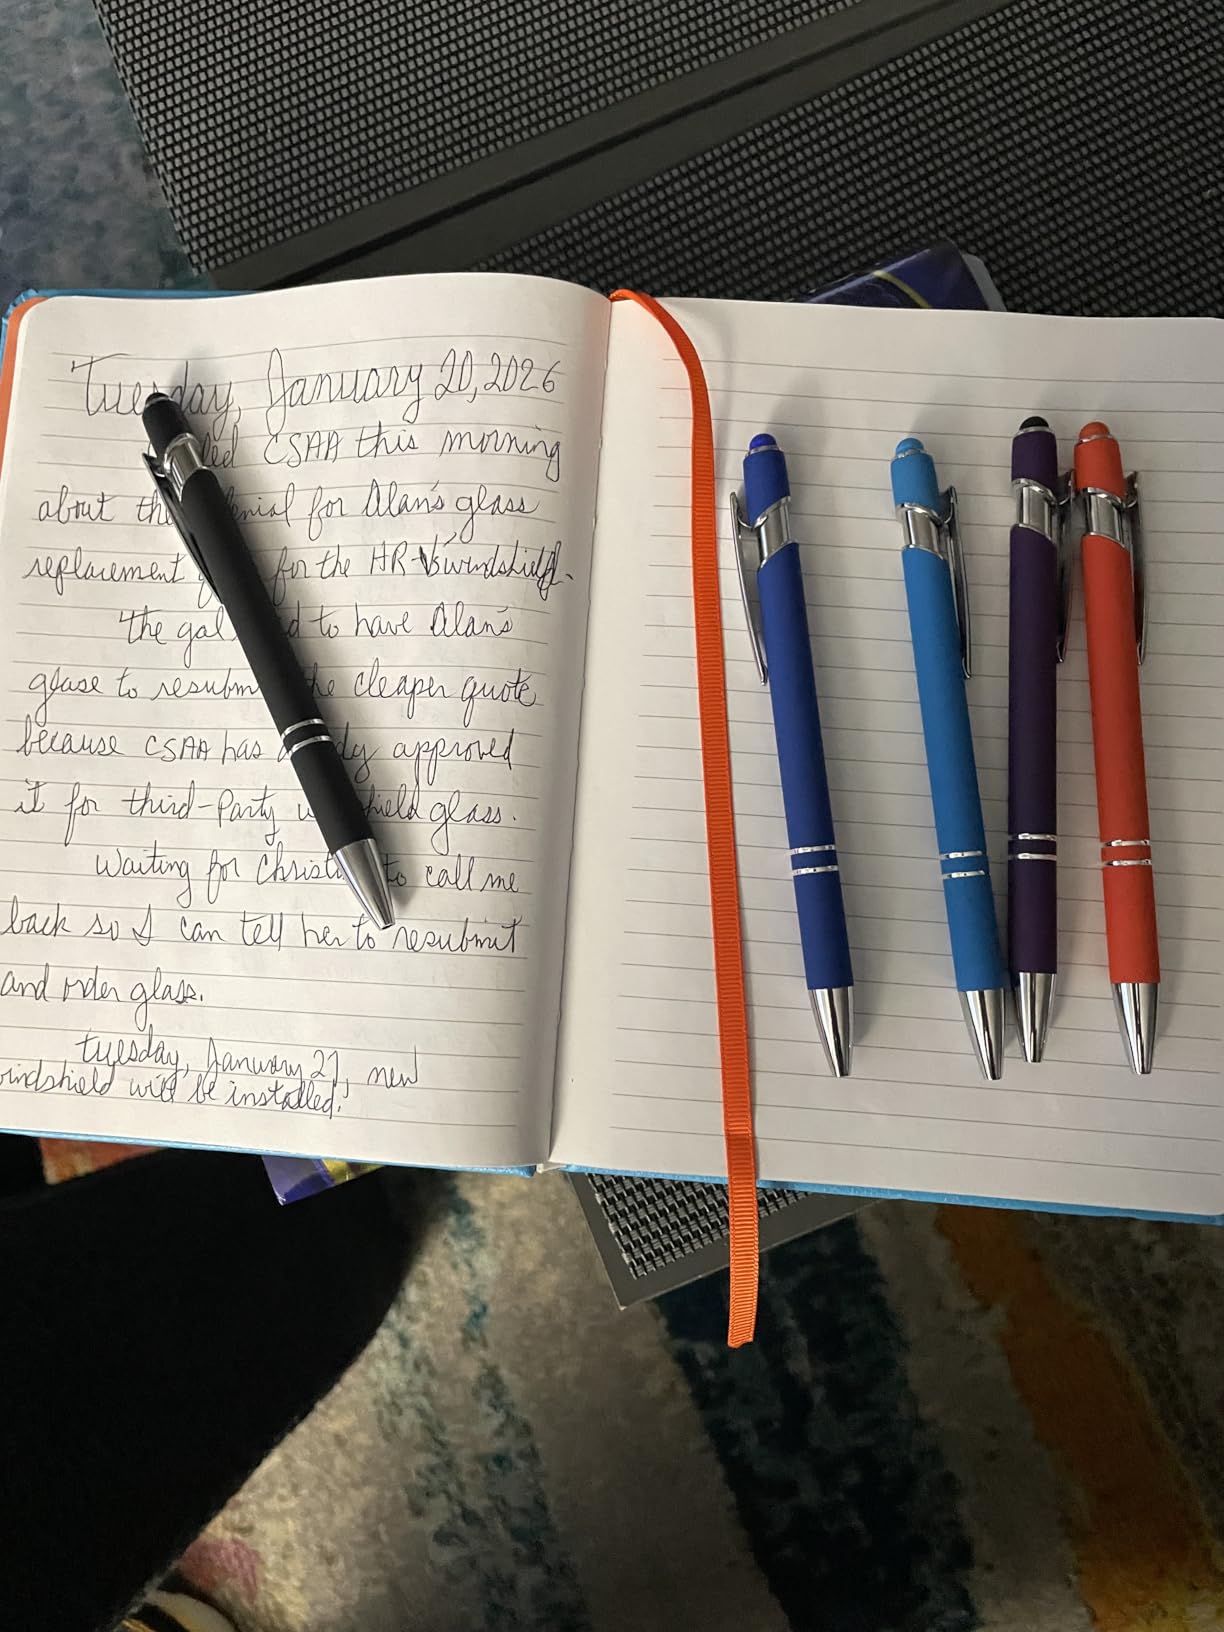 Tuesday, January 20, 2026
CSAA this morning
about the denial for Alan's glass
replacement for the HR-V's windshield.
The gal to have Alan's
glase to resubmit the cleaper quote
because CSAA has already approved
it for third-Party windshield glass.
Waiting for to call me
back so I can tell her to resubmit
and order glass.
Tuesday, January 27, new
windshield will be installed.